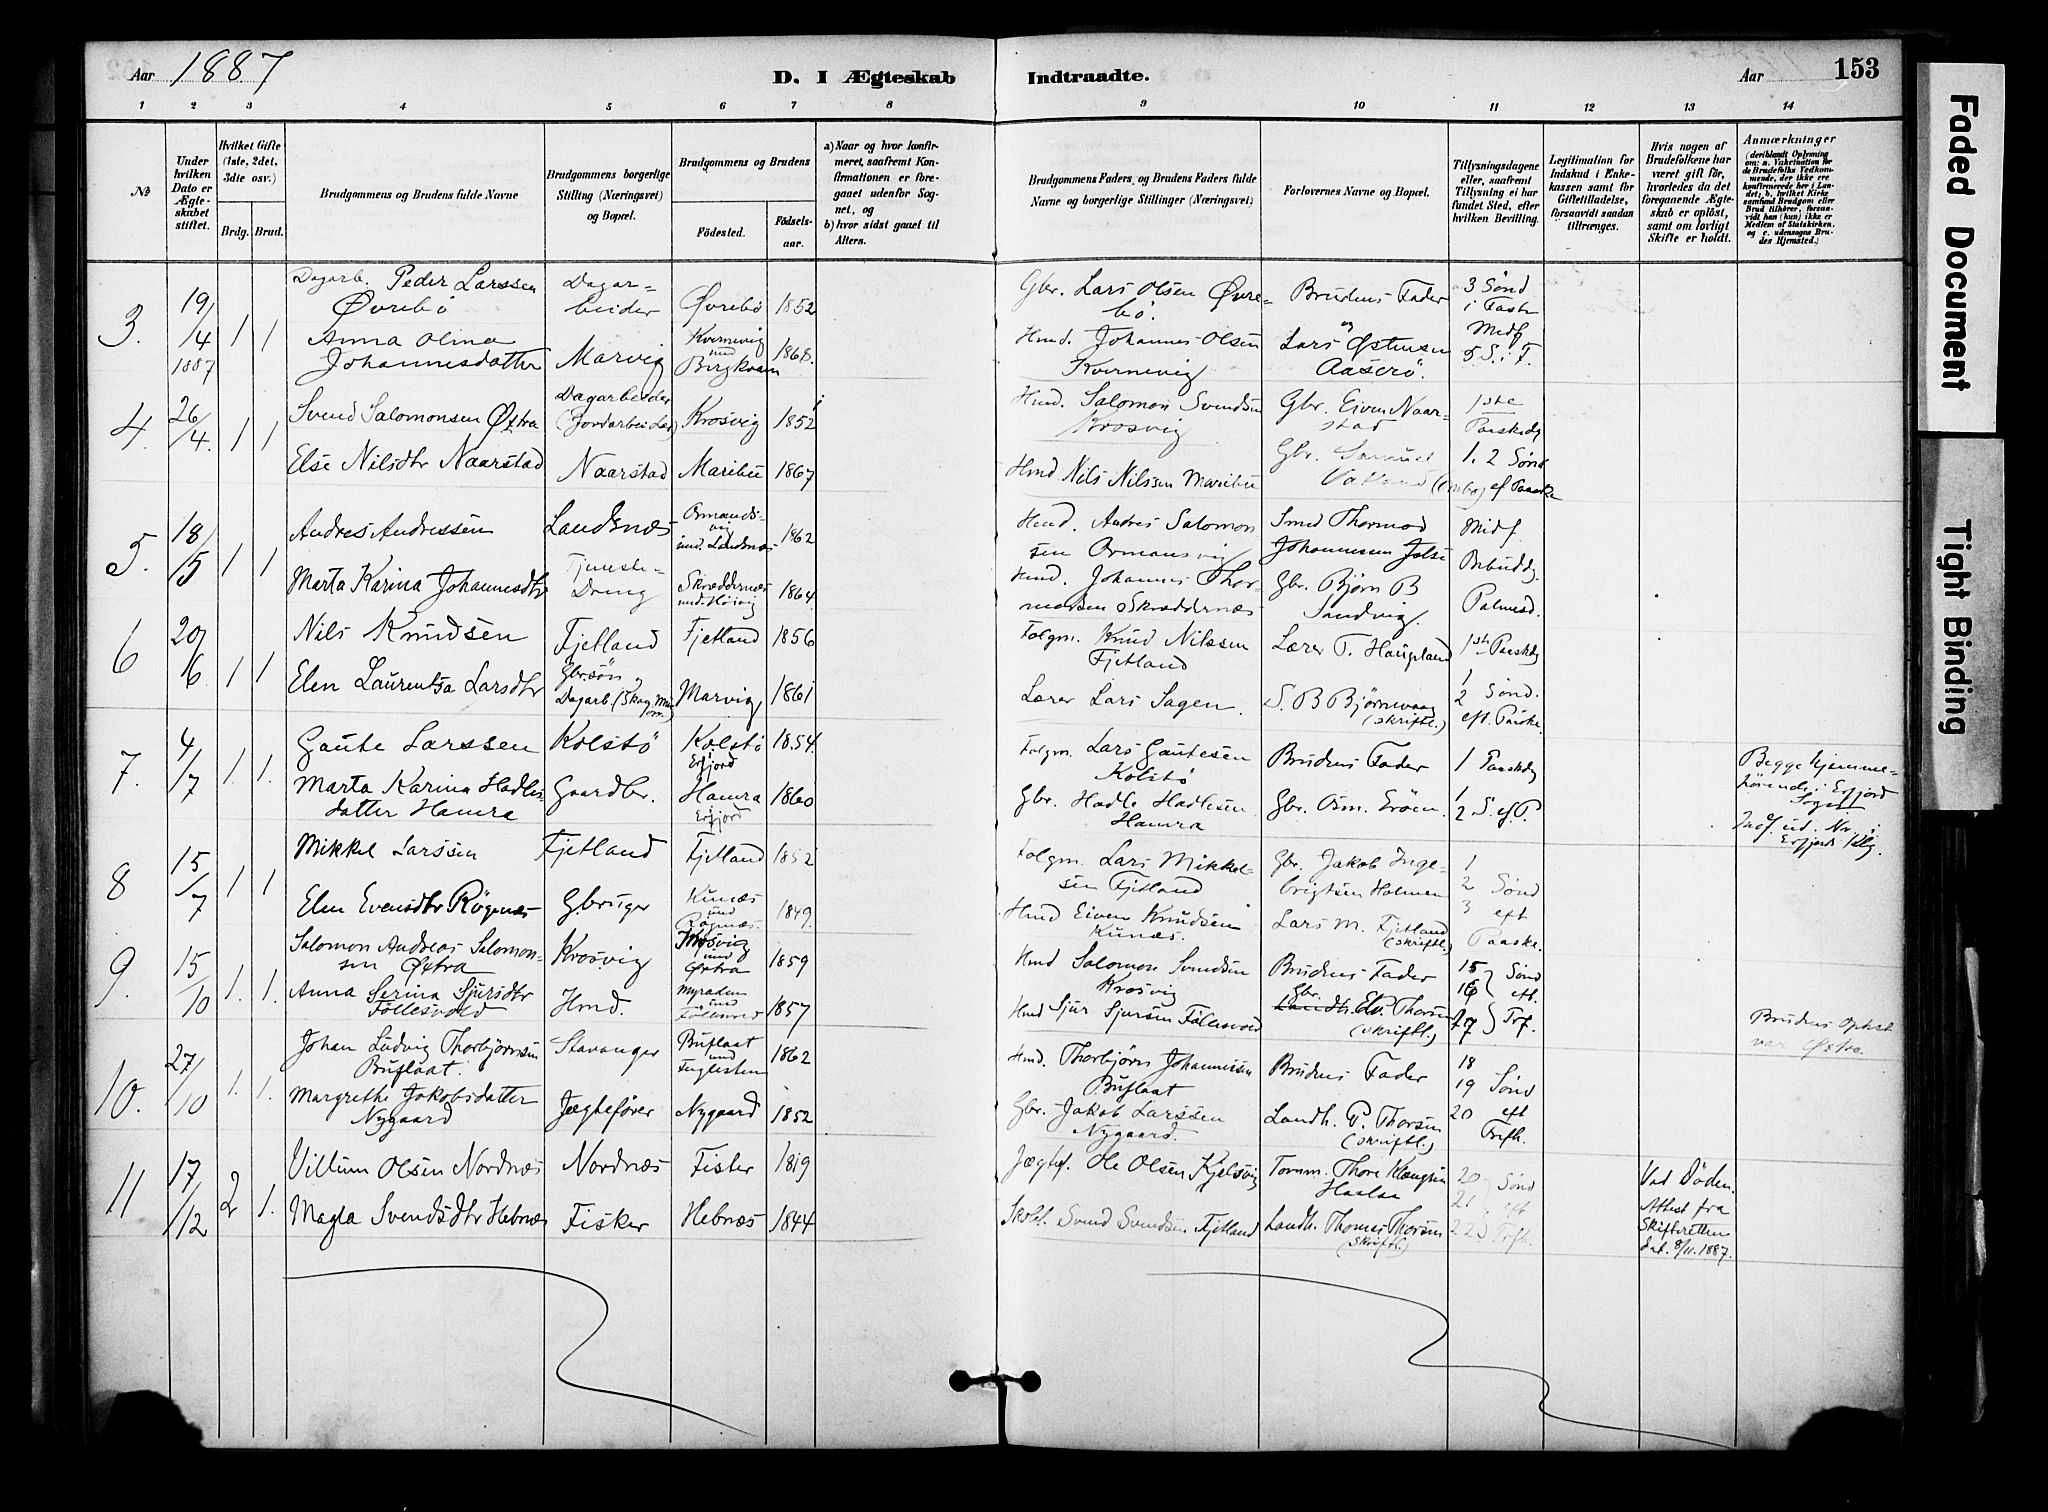 Aar 1887
D. I Ægteskab Indtraadte.
Aar 153
1 2 3 4 5 6 7 8 9 10 11 12 13 14
№
Under hvilken Dato er Ægteskabet stiftet.
Hvilket Gifte (1ste, 2det, 3die osv.)
Brdg. Brud.
Brudgommens og Brudens fulde Navne
Brudgommens borgerlige Stilling (Næringsvei) og Bopæl.
Brudgommens og Brudens
Fødested. Fødselsaar.
a) Naar og hvor konfirmeret, saafremt Konfirmationen er foregaaet udenfor Sognet, og
b) hvor sidst gaaet til Alters.
Brudgommens Faders og Brudens Faders fulde Navne og borgerlige Stillinger (Næringsvei)
Forlovernes Navne og Bopæl.
Tillysningsdagene eller, saafremt Tillysning ei har fundet Sted, efter hvilken Bevilling.
Legitimation for Indskud i Enkekassen samt for Giftetilladelse, forsaavidt saadan tiltrænges.
Hvis nogen af Brudefolkene har været gift før, hvorledes da det foregaaende Ægteskab er opløst, samt om lovligt Skifte er holdt.
Anmærkninger
(deriblandt Oplysning om: a. Vakcination for de Brudefolks Vedkommende, der ikke ere konfirmerede her i Landet; b. hvilket Kirkesamfund Brudgom eller Brud tilhører, forsaavidt han (hun) ikke er Medlem af Statskirken, og c. udensogns Brudes Hjemsted.)
3. 19/4 1887 1 1
Dagarb. Peder Larssen
Øvrebö
Dagarbeider
Øvrebö 1852
Gbr. Lars Olsen Øvrebö.
Brudens Fader
3 Sönd i Faste
Anna Olina
Johannesdatter
Marvig
Kvernevig und Birgkvam 1868.
Hmd. Johannes Olsen
Kvernevig
og
Lars Østensen
Aaserö.
Midf.
5. S. i F.
4. 26/4. 1 1
Svend Salomonsen Øxtra
Dagarbeider
(Jordarbeider)
Krosvig 1852
Hmd. Salomon Svendsen
Krosvig
Gbr. Eiven Naarstad
1ste
Paaskedg
Else Nilsdtr Naarstad
Naarstad Maribu 1867
Hmd Nils Nilssen Maribu
Gbr.
1. 2 Sönd
ef Paaske
5. 18/5 1 1
Andres Andressen
Landsnæs
und. Landsnæs 1862
Hmd. Andres Salomonsen Ormansvig
Smed Thormod
Johannesen Jelse
Midf.
Bebuddg.
Marta Karina Johannesdtr
Tjenestedreng
Skræddernæs 1864.
Hmd. Johannes Thormodsen Skræddernæs
Gbr. Björn B
Sandvig.
Palmesd.
6 20/6. 1 1
Nils Knudsen
Fjetland Fjetland 1856
Folgm. Knud Nilssen
Fjetland
Lærer T. Haugeland
1ste Paaskdg
Elen Laurentsa Larsdtr
Gbrsön,
Dagarb.
Marvig 1861
Lærer Lars Sagen.
S. B Björnevaag
(skriftl.)
1
2 Sönd.
eft. Paaske.
7. 4/7 1. 1.
Gaute Larssen
Kolstö
Kolstö
Erfjord
1854.
Folgm. Lars Gautesen
Kolstö
Brudens Fader
1 Paaskdg
Begge hjemmehörende i Erfjord
Sogn
Marta Karina Hadlesdatter Hamra
Gaardbr.
Hamra
Erfjord
1860
Gbr. Hadle Hadlesen
Hamra
Gbr. Osm. Eröen.
1
2 S. ef. P.
Indf. ud. No
8 15/7 1 1
Mikkel Larssen
Fjetland Fjetland 1852
Folgm. Lars Mikkelsen Fjetland
Gbr. Jakob Ingebrigtsen Holmen
1
2 Sönd
3 eft
Paaske.
Elen Evensdtr Rögenæs
Gbruger
Kunæs
und
Rögnæs. 1849.
Hmd Eiven Knudsen
Kunæs.
Lars M. Fjetland
(skriftl.)
9. 15/10 1. 1.
Salomon Andreas Salomonsen Øxtra
Krosvig
Krosvig
und
Øxtra 1859
Hmd Salomon Svendsen
Krosvig
Brudens Fader
15
16
17
Sönd
eft.
Trf.
Anna Serina Sjursdtr
Föllesvold
Hmd.
Myraden
und
Föllesvold 1857
Hmd Sjur Sjursen Föllesvold
Gbr. Thorsen
(skriftl.)
Brudens Opholdst
var Øxtra.
10. 27/10 1. 1.
Johan Ludvig Thorbjörnsen
Buflaat.
Stavanger
Buflaat
und
Fuglesten 1862
Hmd. Thorbjörn Johannessen
Buflaat
Brudens Fader
18
19 Sönd
20 eft
Trfh.
Margrethe Jakobsdatter
Nygaard
Jægtefører Nygaard 1852
Gbr. Jakob Larssen
Nygaard.
Landh. P. Thorsen
(skriftl.)
11 17/12 2 1.
Villum Olsen Nordnæs
Nordnæs Fister 1819
Jægtef. Ole Olsen Kjelsvig
Tomm. Thore
20
21
22
Sönd
eft
Trfh.
Ved Döden.
Attest fra
Skifteretten
dat. 8/11. 1887.
Magla Svendsdtr Hebnæs
Fisker Hebnæs 1844
Svend Svendsen Fjetland
Landh. Thomas Thorsen
(skriftl.)
Faded Document
Tight Binding